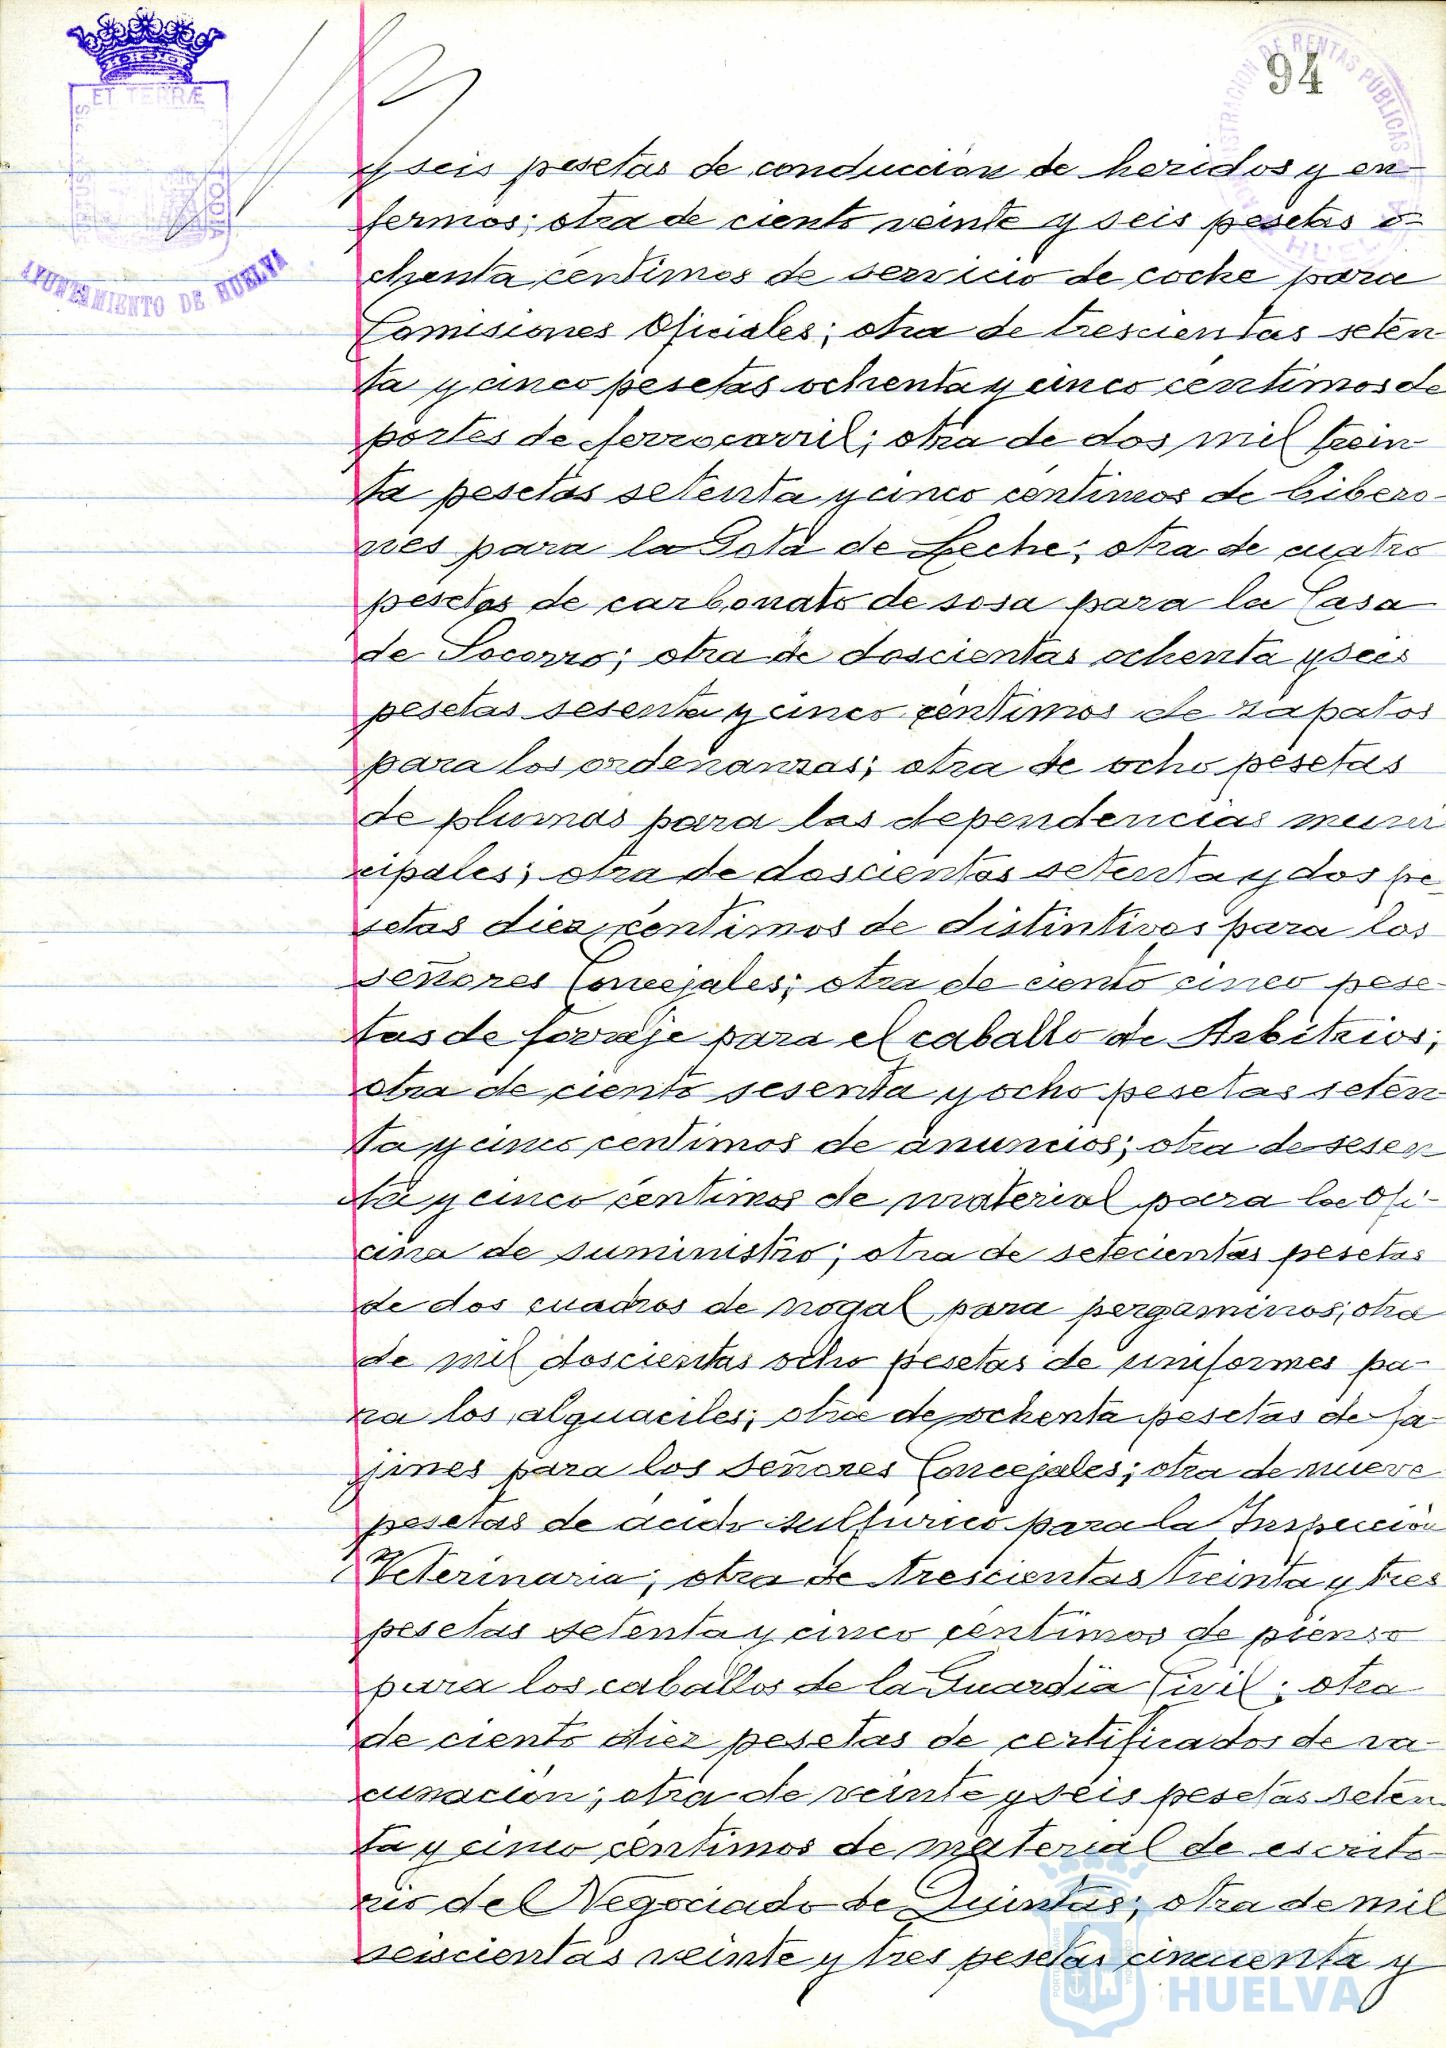 94
ET TERRÆ
AYUNTAMIENTO DE HUELVA
DE RENTAS PUBLICAS
y seis pesetas de conducción de heridos y en-
fermos; otra de ciento veinte y seis pesetas o-
chenta céntimos de servicio de coche para
Comisiones Oficiales; otra de trescientas seten-
ta y cinco pesetas ochenta y cinco centimos de
portes de ferrocarril; otra de dos mil trein-
ta pesetas setenta y cinco centimos de bibero-
nes para la Gota de Leche; otra de cuatro
pesetas de carbonato de sosa para la Casa
de Socorro; otra de doscientas ochenta y seis
pesetas sesenta y cinco centimos de zapatos
para los ordenanzas; otra de ocho pesetas
de plumas para las dependencias muni
cipales; otra de doscientas setenta y dos pe-
setas diez centimos de distintivos para los
señores Concejales; otra de ciento cinco pese-
tas de forraje para el caballo de Arbitrios;
otra de ciento sesenta y ocho pesetas seten-
ta y cinco centimos de anuncios; otra de sesen
ta y cinco centimos de material para la Ofi-
cina de suministro; otra de setecientas pesetas
de dos cuadros de nogal para pergaminos; otra
de mil doscientas ocho pesetas de uniformes pa-
ra los alguaciles; otra de ochenta pesetas de fa-
jines para los señores Concejales; otra de nueve
pesetas de ácido sulfúrico para la Inspección
Veterinaria; otra de trescientas treinta y tres
pesetas setenta y cinco centimos de pienso
para los caballos de la Guardia Civil; otra
de ciento diez pesetas de certificados de va-
cunación; otra de veinte y seis pesetas seten-
ta y cinco céntimos de material de escrito-
rio del Negociado de Quintas; otra de mil
seiscientas veinte y tres pesetas cincuenta y
HUELVA